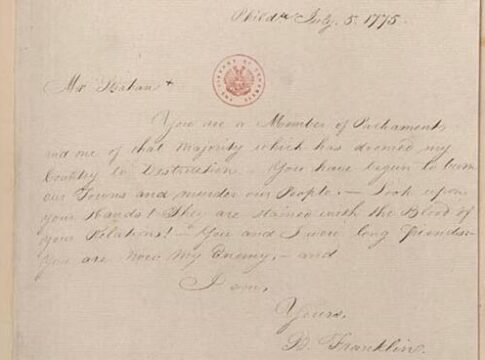 Philda July 5. 1775.
Mr Strahan
You are a Member of Parliament,
and one of that Majority which has doomed my
Country to Destruction. — You have begun to burn
our Towns and murder our People. — Look upon
your Hands! They are stained with the Blood of
your Relations! — You and I were long Friends:—
You are now my Enemy, — and
I am,
Yours,
B Franklin.